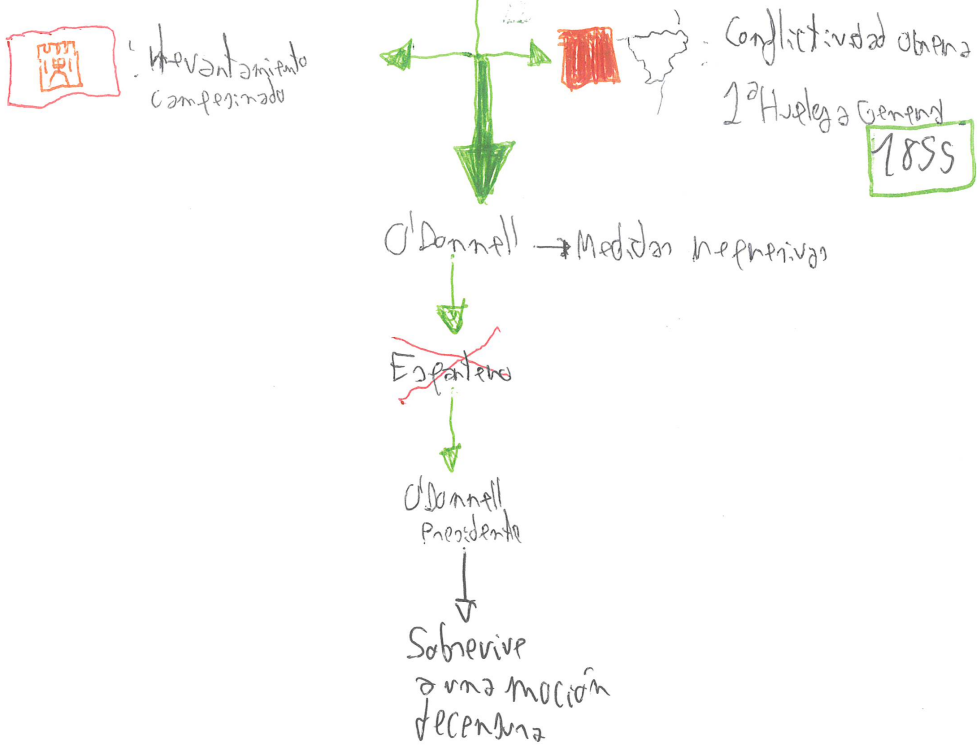 : Levantamiento
campesinado
: Conflictividad obrera
1ª Huelga General
1855
O'Donnell → Medidas represivas
Espartero
O'Donnell
Presidente
Sobrevive
a una moción
de censura